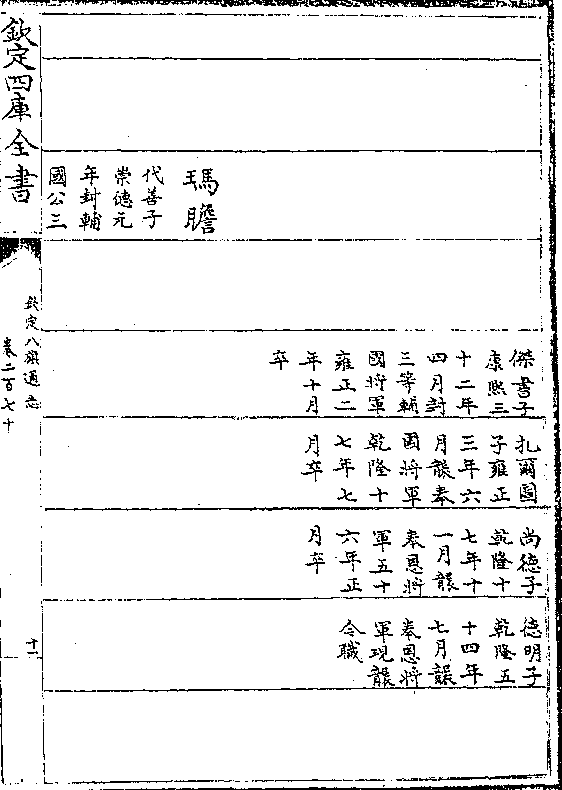 瑪瞻
代善子
崇德元
年封輔
國公三
傑書子
康熙三
十二年
四月封
三等輔
國將軍
雍正二
年十月
卒
扎爾圖
子雍正
三年六
月襲奉
國將軍
乾隆十
七年七
月卒
尚德子
乾隆十
七年十
一月襲
奉恩將
軍五十
六年正
月卒
德明子
乾隆五
十四年
七月襲
奉恩將
軍現襲
令職
欽定四庫全書
欽定八旗通志
卷二百七十
十一